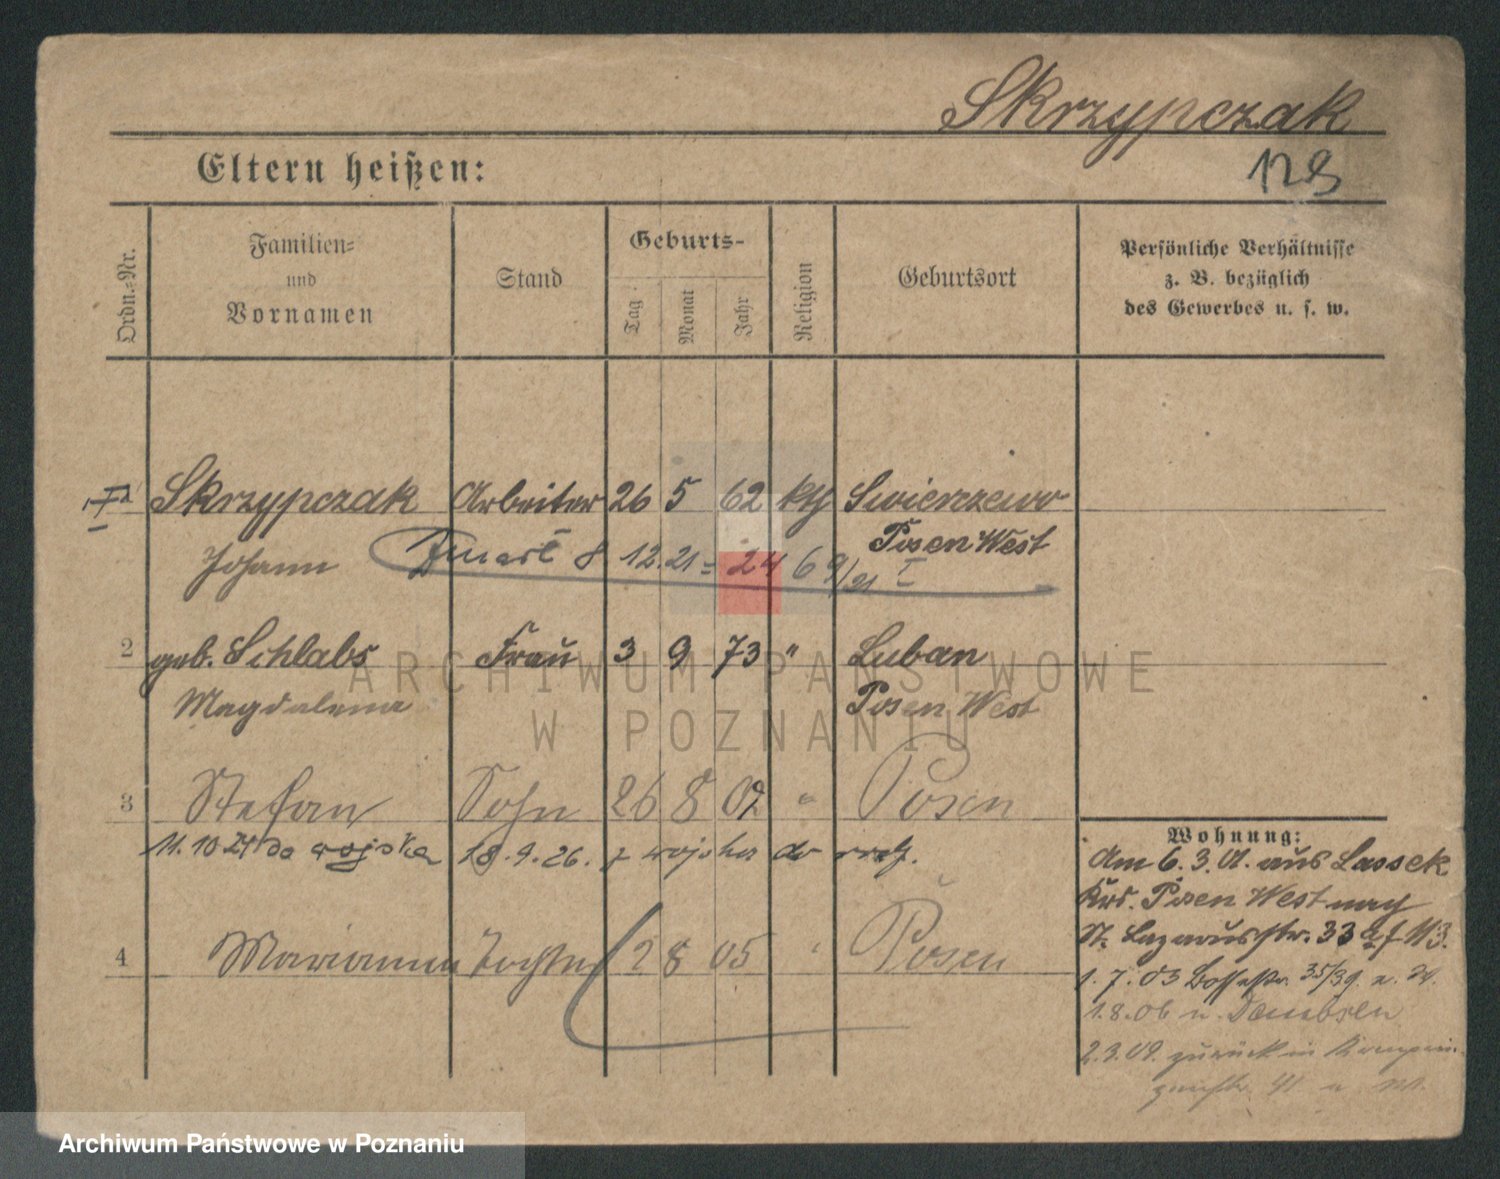 Skrzypczak
128
Eltern heißen:
Ordn.-Nr.
Familien-
und
Vornamen
Stand
Geburts-
Tag
Monat
Jahr
Religion
Geburtsort
Persönliche Verhältnisse
z. B. bezüglich
des Gewerbes u. s. w.
Skrzypczak Arbeiter 26 5 62 kth Swierczewo
Posen West
Johann Zmarł 8 12.21 = 24 6 9/21 I
2 geb. Schlabs Frau 3 9 73 " Luban
Magdalena Posen West
3 Stefan Sohn 26 8 02 " Posen
11.10 24 do wojska 18.9.26. z wojska do
4 Marianna Tochter 2 8 05 " Posen
Wohnung:
Am 6.3.01. aus Lassek
Krs. Posen West nach
St. Lazarusstr. 33
1.7.03 35/39
1.8.06 n. Dembsen
2.3.09. zurück in
41
ARCHIWUM PAŃSTWOWE
W POZNANIU
Archiwum Państwowe w Poznaniu